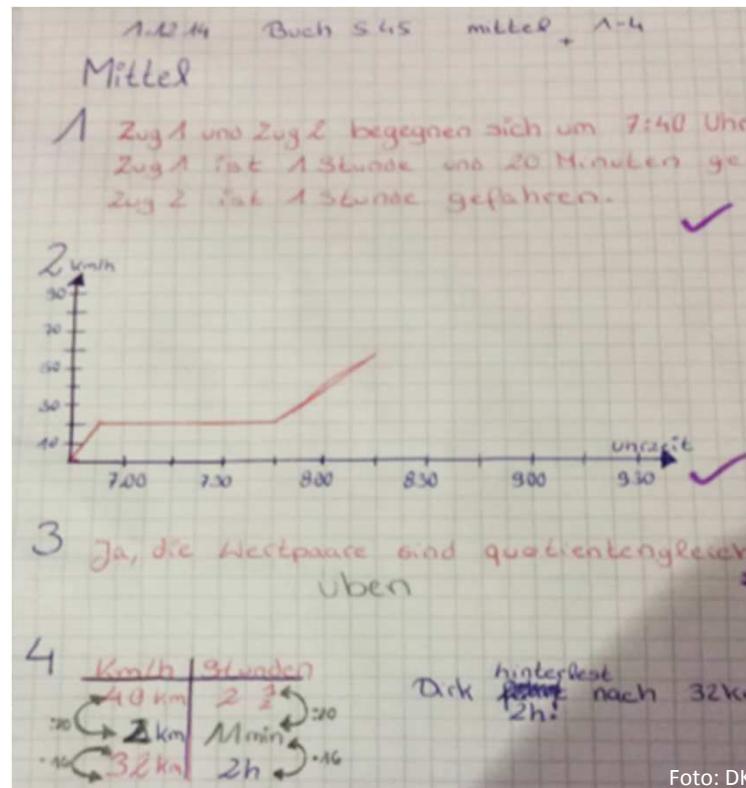 1.12.14 Buch S 45 mittel 1-4
Mittel
1 Zug 1 und Zug 2 begegnen sich um 7:40 Uhr
Zug 1 ist 1 Stunde und 20 Minuten ge
Zug 2 ist 1 Stunde gefahren.
2 km/h
90
70
50
30
10
Uhrzeit
7.00 7.30 8.00 8.30 9.00 9.30
3 Ja, die Wertpaare sind quotientengleich
üben
4 Km/h Stunden
40 km 2 1/2
:20 2 km 11min :20
·16 32 km 2h ·16
Dirk hinterlest nach 32k
2h!
Foto: DK